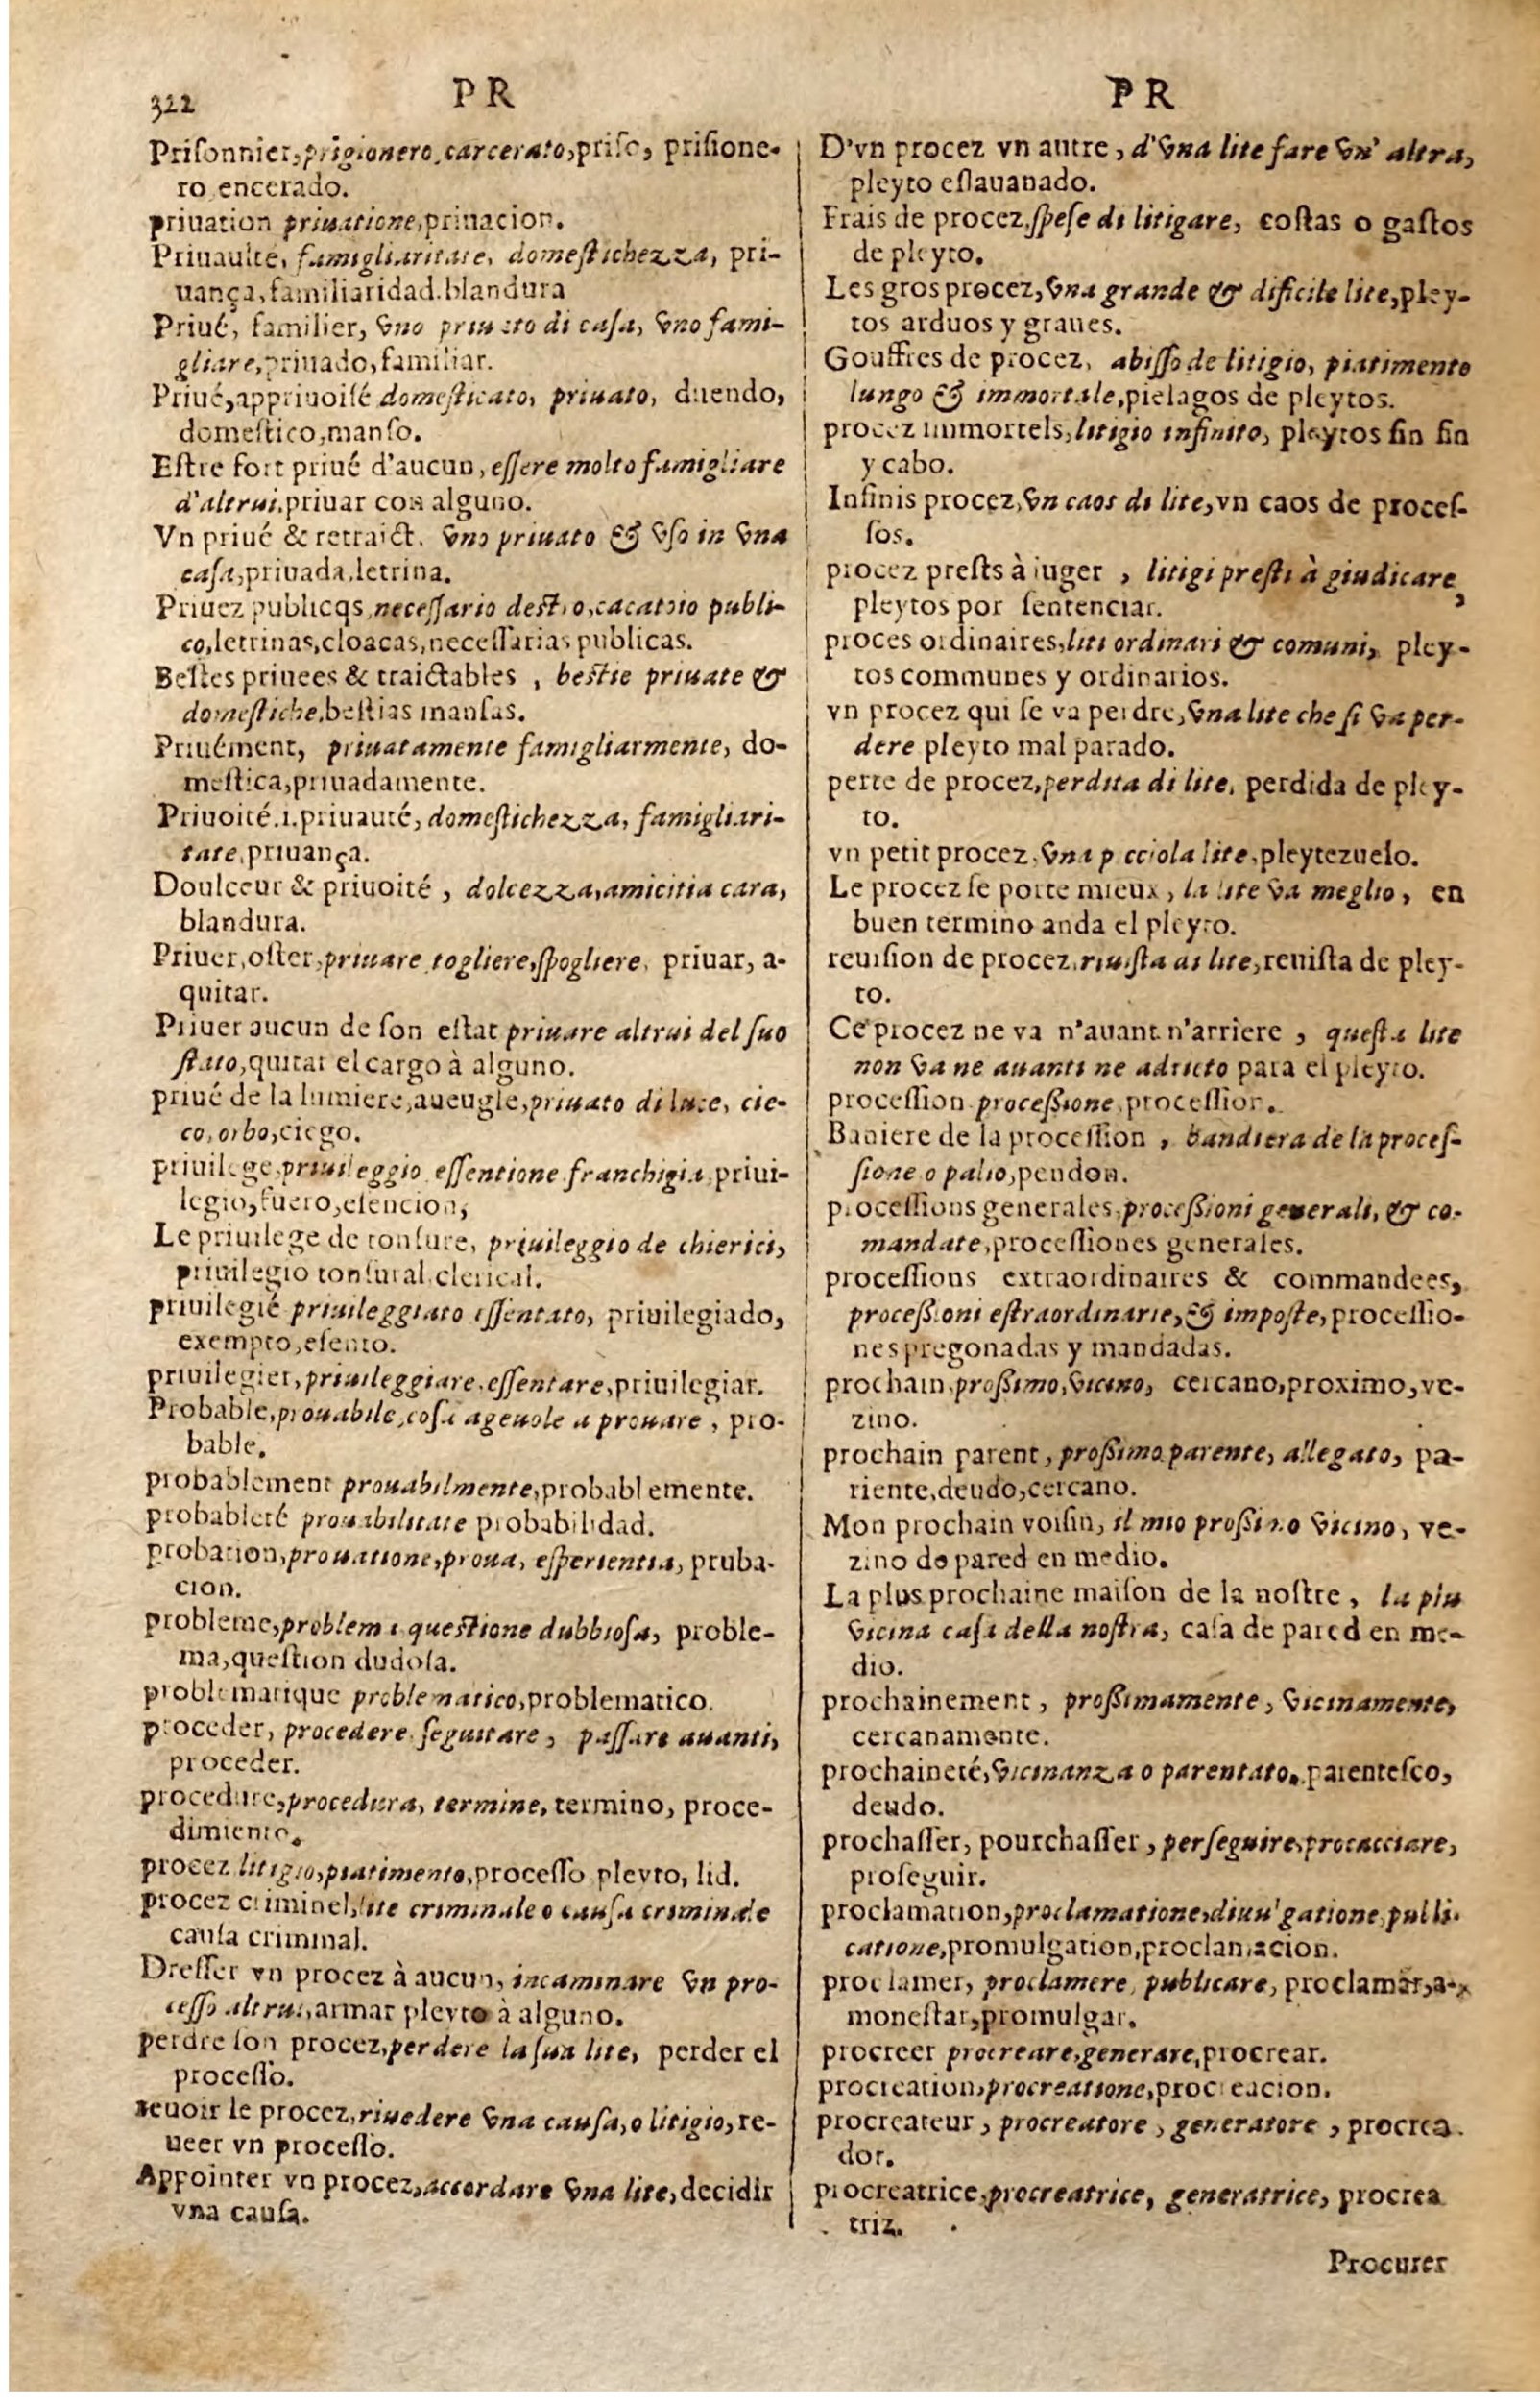 322
PR
PR
Priſonnier, prigionero, carcerato, priſo, priſione-
ro encerado.
priuation priuatione, priuacion.
Priuaulté, famigliaritate, domeſtichezza, pri-
uança, familiaridad. blandura
Priué, familier, vno priuato di caſa, vno fami-
gliare, priuado, familiar.
Priué, appriuoiſé domeſticato, priuato, duendo,
domeſtico, manſo.
Eſtre fort priué d'aucun, eſſere molto famigliare
d'altrui, priuar con alguno.
Vn priué & retraict. vno priuato & vſo in vna
caſa, priuada, letrina.
Priuez publicqs, neceſſario deſtro, cacatoio publi-
co, letrinas, cloacas, neceſſarias publicas.
Beſtes priuees & traictables, beſtie priuate &
domeſtiche, beſtias manſas.
Priuément, priuatamente famigliarmente, do-
meſtica, priuadamente.
Priuoité. i. priuauté, domeſtichezza, famigliari-
tate, priuança.
Doulceur & priuoité, dolcezza, amicitia cara,
blandura.
Priuer, oſter, priuare togliere, ſpogliere, priuar, a-
quitar.
Priuer aucun de ſon eſtat priuare altrui del ſuo
ſtato, quitar el cargo à alguno.
priué de la lumiere, aueugle, priuato di luce, cie-
co, orbo, ciego.
priuilege, priuileggio eſſentione franchigia, priui-
legio, fuero, eſencion,
Le priuilege de tonſure, priuileggio de chierici,
priuilegio tonſural, clerical.
priuilegié priuileggiato eſſentato, priuilegiado,
exempto, eſento.
priuilegier, priuileggiare, eſſentare, priuilegiar.
Probable, prouabile, coſa ageuole a prouare, pro-
bable.
probablement prouabilmente, probablemente.
probableté prouabilitate probabilidad.
probation, prouatione, proua, eſperientia, pruba-
cion.
probleme, problema queſtione dubbioſa, proble-
ma, queſtion dudoſa.
problematique problematico, problematico.
proceder, procedere, ſeguitare, paſſare auanti,
proceder.
procedure, procedura, termine, termino, proce-
dimiento.
procez litigio, piatimento, proceſſo pleyto, lid.
procez criminel, lite criminale o cauſa criminale
cauſa criminal.
Dreſſer vn procez à aucun, incaminare vn pro-
ceſſo altrui, armar pleyto à alguno.
perdre ſon procez, perdere la ſua lite, perder el
proceſſo.
reuoir le procez, riuedere vna cauſa, o litigio, re-
ueer vn proceſſo.
Appointer vn procez, accordare vna lite, decidir
vna cauſa.
D'vn procez vn autre, d'vna lite fare vn' altra,
pleyto eſlauanado.
Frais de procez, ſpeſe di litigare, coſtas o gaſtos
de pleyto.
Les gros procez, vna grande & dificile lite, pley-
tos arduos y graues.
Gouffres de procez, abiſſo de litigio, piatimento
lungo & immortale, pielagos de pleytos.
procez immortels, litigio infinito, pleytos ſin fin
y cabo.
Infinis procez, vn caos di lite, vn caos de proceſ-
ſos.
procez preſts à iuger, litigi preſti à giudicare,
pleytos por ſentenciar.
proces ordinaires, liti ordinari & comuni, pley-
tos communes y ordinarios.
vn procez qui ſe va perdre, vna lite che ſi va per-
dere pleyto mal parado.
perte de procez, perdita di lite, perdida de pley-
to.
vn petit procez, vna picciola lite, pleytezuelo.
Le procez ſe porte mieux, la lite va meglio, en
buen termino anda el pleyto.
reuiſion de procez, riuiſta di lite, reuiſta de pley-
to.
Ce procez ne va n'auant n'arriere, queſta lite
non va ne auanti ne adrieto para el pleyto.
proceſſion proceſſione, proceſſion.
Baniere de la proceſſion, bandiera de la proceſ-
ſione o palio, pendon.
proceſſions generales, proceſſioni generali, & co-
mandate, proceſſiones generales.
proceſſions extraordinaires & commandees,
proceſſioni eſtraordinarie, & impoſte, proceſſio-
nes pregonadas y mandadas.
prochain, proſſimo, vicino, cercano, proximo, ve-
zino.
prochain parent, proſſimo parente, allegato, pa-
riente, deudo, cercano.
Mon prochain voiſin, il mio proſſimo vicino, ve-
zino de pared en medio.
La plus prochaine maiſon de la noſtre, la piu
vicina caſa della noſtra, caſa de pared en me-
dio.
prochainement, proſſimamente, vicinamente,
cercanamente.
prochaineté, vicinanza o parentato, parenteſco,
deudo.
prochaſſer, pourchaſſer, perſeguire, procacciare,
proſeguir.
proclamation, proclamatione, diuulgatione, publi-
catione, promulgation, proclamacion.
proclamer, proclamere, publicare, proclamar, a-
moneſtar, promulgar.
procreer procreare, generare, procrear.
procreation, procreatione, procreacion.
procreateur, procreatore, generatore, procrea
dor.
procreatrice, procreatrice, generatrice, procrea
triz.
Procurer